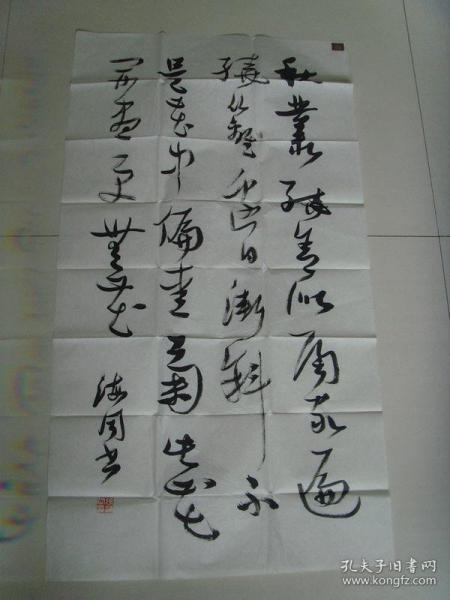 秋丛绕舍似陶家遍
绕篱边日渐斜不
是花中偏爱菊此花
开尽更无花
海同书
孔夫子旧书网
www.kongfz.com